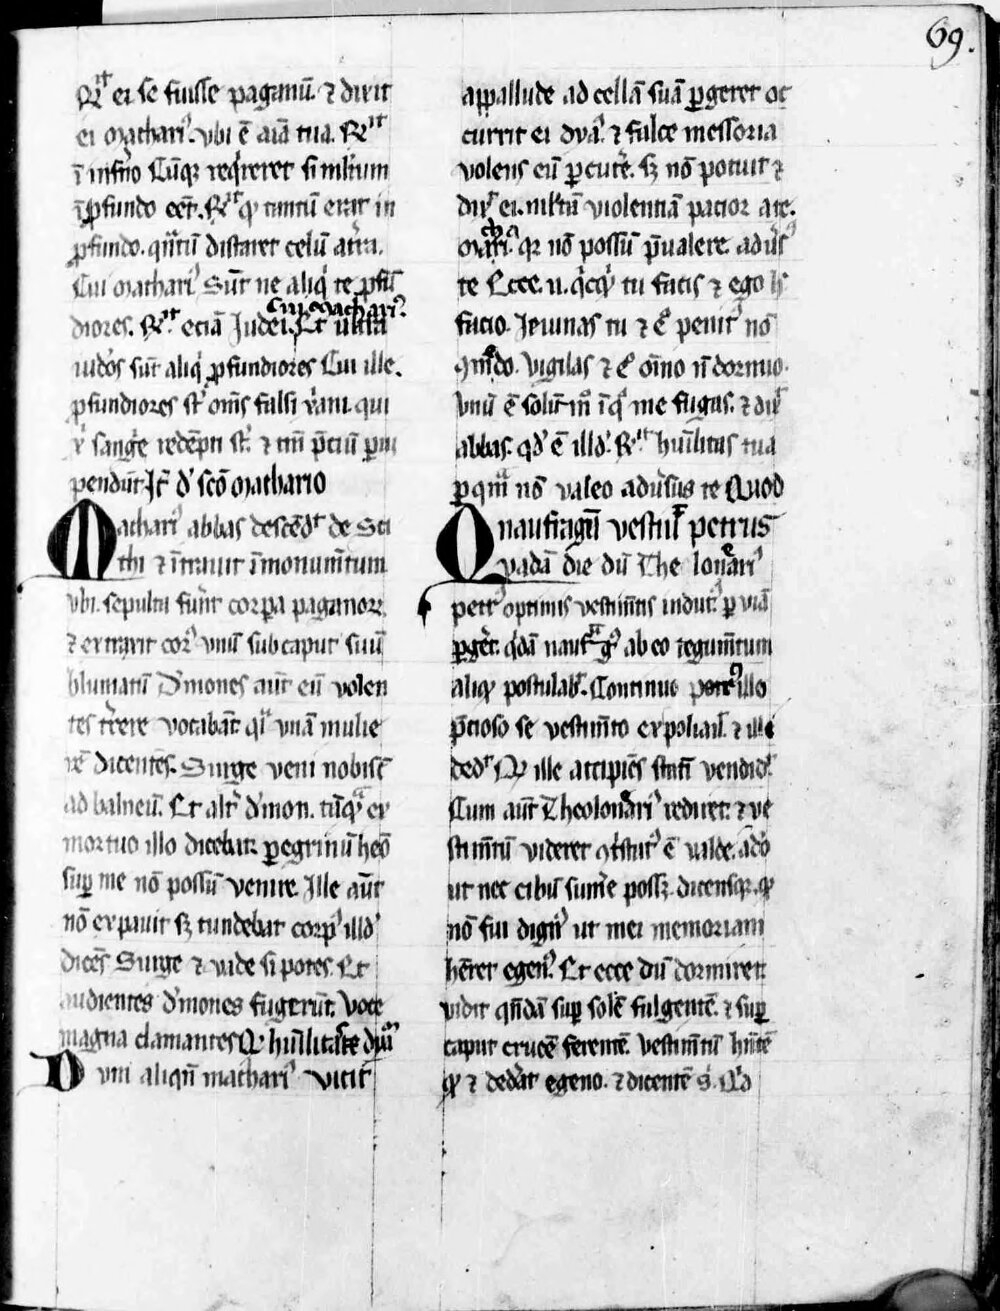 69.
R͞it ei se fuisse paganū. ⁊ dixit
ei Machari᷒. vbi ē aīa tua. R͞it
ī inf̄no Cūq; req̇reret si m̄ltum
ī ꝓfundo eēt. R͞it qꝫ tantū erat in
ꝓfundo. q̄ntū distaret celū a t̄ra.
Cui Machari᷒ Sūt ne aliq̇ te ꝓfū
diores. R͞it. etiā Judei. Et ultra
Cui Machari᷒.
iudōs sūt aliq̇ ꝓfundiores Cui ille.
ꝓfundiores st᷒ om̄s falsi xr̄ani. qui
xp̄i sanḡe redēpti st᷒. ⁊ tm̄ p̄ciū ꝑui
pendūt. Jt᷒ d᷒ sc̄o Machario
Machari᷒ abbas descēd᷒t de Sci
thi ⁊ īt̄uit ī monum̄tum
vbi sepulta fuer̄t corꝑa paganorꝝ
⁊ extraxit corp᷒ vnū sub caput suū
Dēmones aūt eū volen
tes t̄rere vocabāt qᵃ̇ vnā mulie
rē dicentes. Surge veni nobiscū
ad balneū. Et alt᷒ dēmon. tāqᵃ̄ ex
mortuo illo dicebat ꝑegrinū heō
suꝑ me nō possū venire. Ille aūt
nō expauit sꝫ tundebat corp᷒ illd᷒
dicēs Surge ⁊ vade si potes. Et
audientes dēmones fugerūt. voce
magna clamantes hūilitate
Dum aliqn̄ machari᷒ vicit
a pallude ad cellā suā ꝑgeret oc
currit ei dyaᵒ. ⁊ falce messoria
volens eū ꝑcut̄e. sꝫ nō potuit ⁊
dix᷒ ei. m̄ltā violentiā patior a te.
Machari᷒. qꝛ nō possū p̄ualere adūs᷒
te Ecce. n. q̇cqᵈ tu facis ⁊ ego h᷒
facio. Jeiunas tu ⁊ eᵒ penit᷒ nō
9medo. vigilas ⁊ eᵒ oīno nō dormio.
vnū ē solū m̄ īqᵒ me fugas. ⁊ dix᷒
abbas. qd᷒ ē illd᷒. R͞it hūilitas tua
ꝑ quā nō valeo adūsus te Quod
naufragū vestiu᷒ petrus
Quadā die dū Theolonari᷒
petr᷒ optimis vestim̄tis indut᷒ ꝑ viā
ꝑḡet. q̇dā naufrag᷒ ab eo tegum̄tum
aliqꝫ postulab᷒. Continuo petr᷒ illo
p̄cioso se vestim̄to expoliau᷒. ⁊ illi
ded᷒t Qꝫ ille accipiēs statī vendid᷒.
Cum aūt Theolonari᷒ rediret. ⁊ ve
stim̄tū videret 9tstat᷒ ē valde. adō
ut nec cibū sum̄e possꝫ. dicensqꝫ. qꝫ
nō fui dign᷒ ut mei memoriam
hēret egen᷒. Et ecce dū dormiret
vidit quēdā suꝑ solē fulgentē. ⁊ suꝑ
caput crucē ferentē. vestim̄tū hn̄tē
qꝫ ⁊ ded̄at egeno. ⁊ dicentē s᷒. Qd᷒